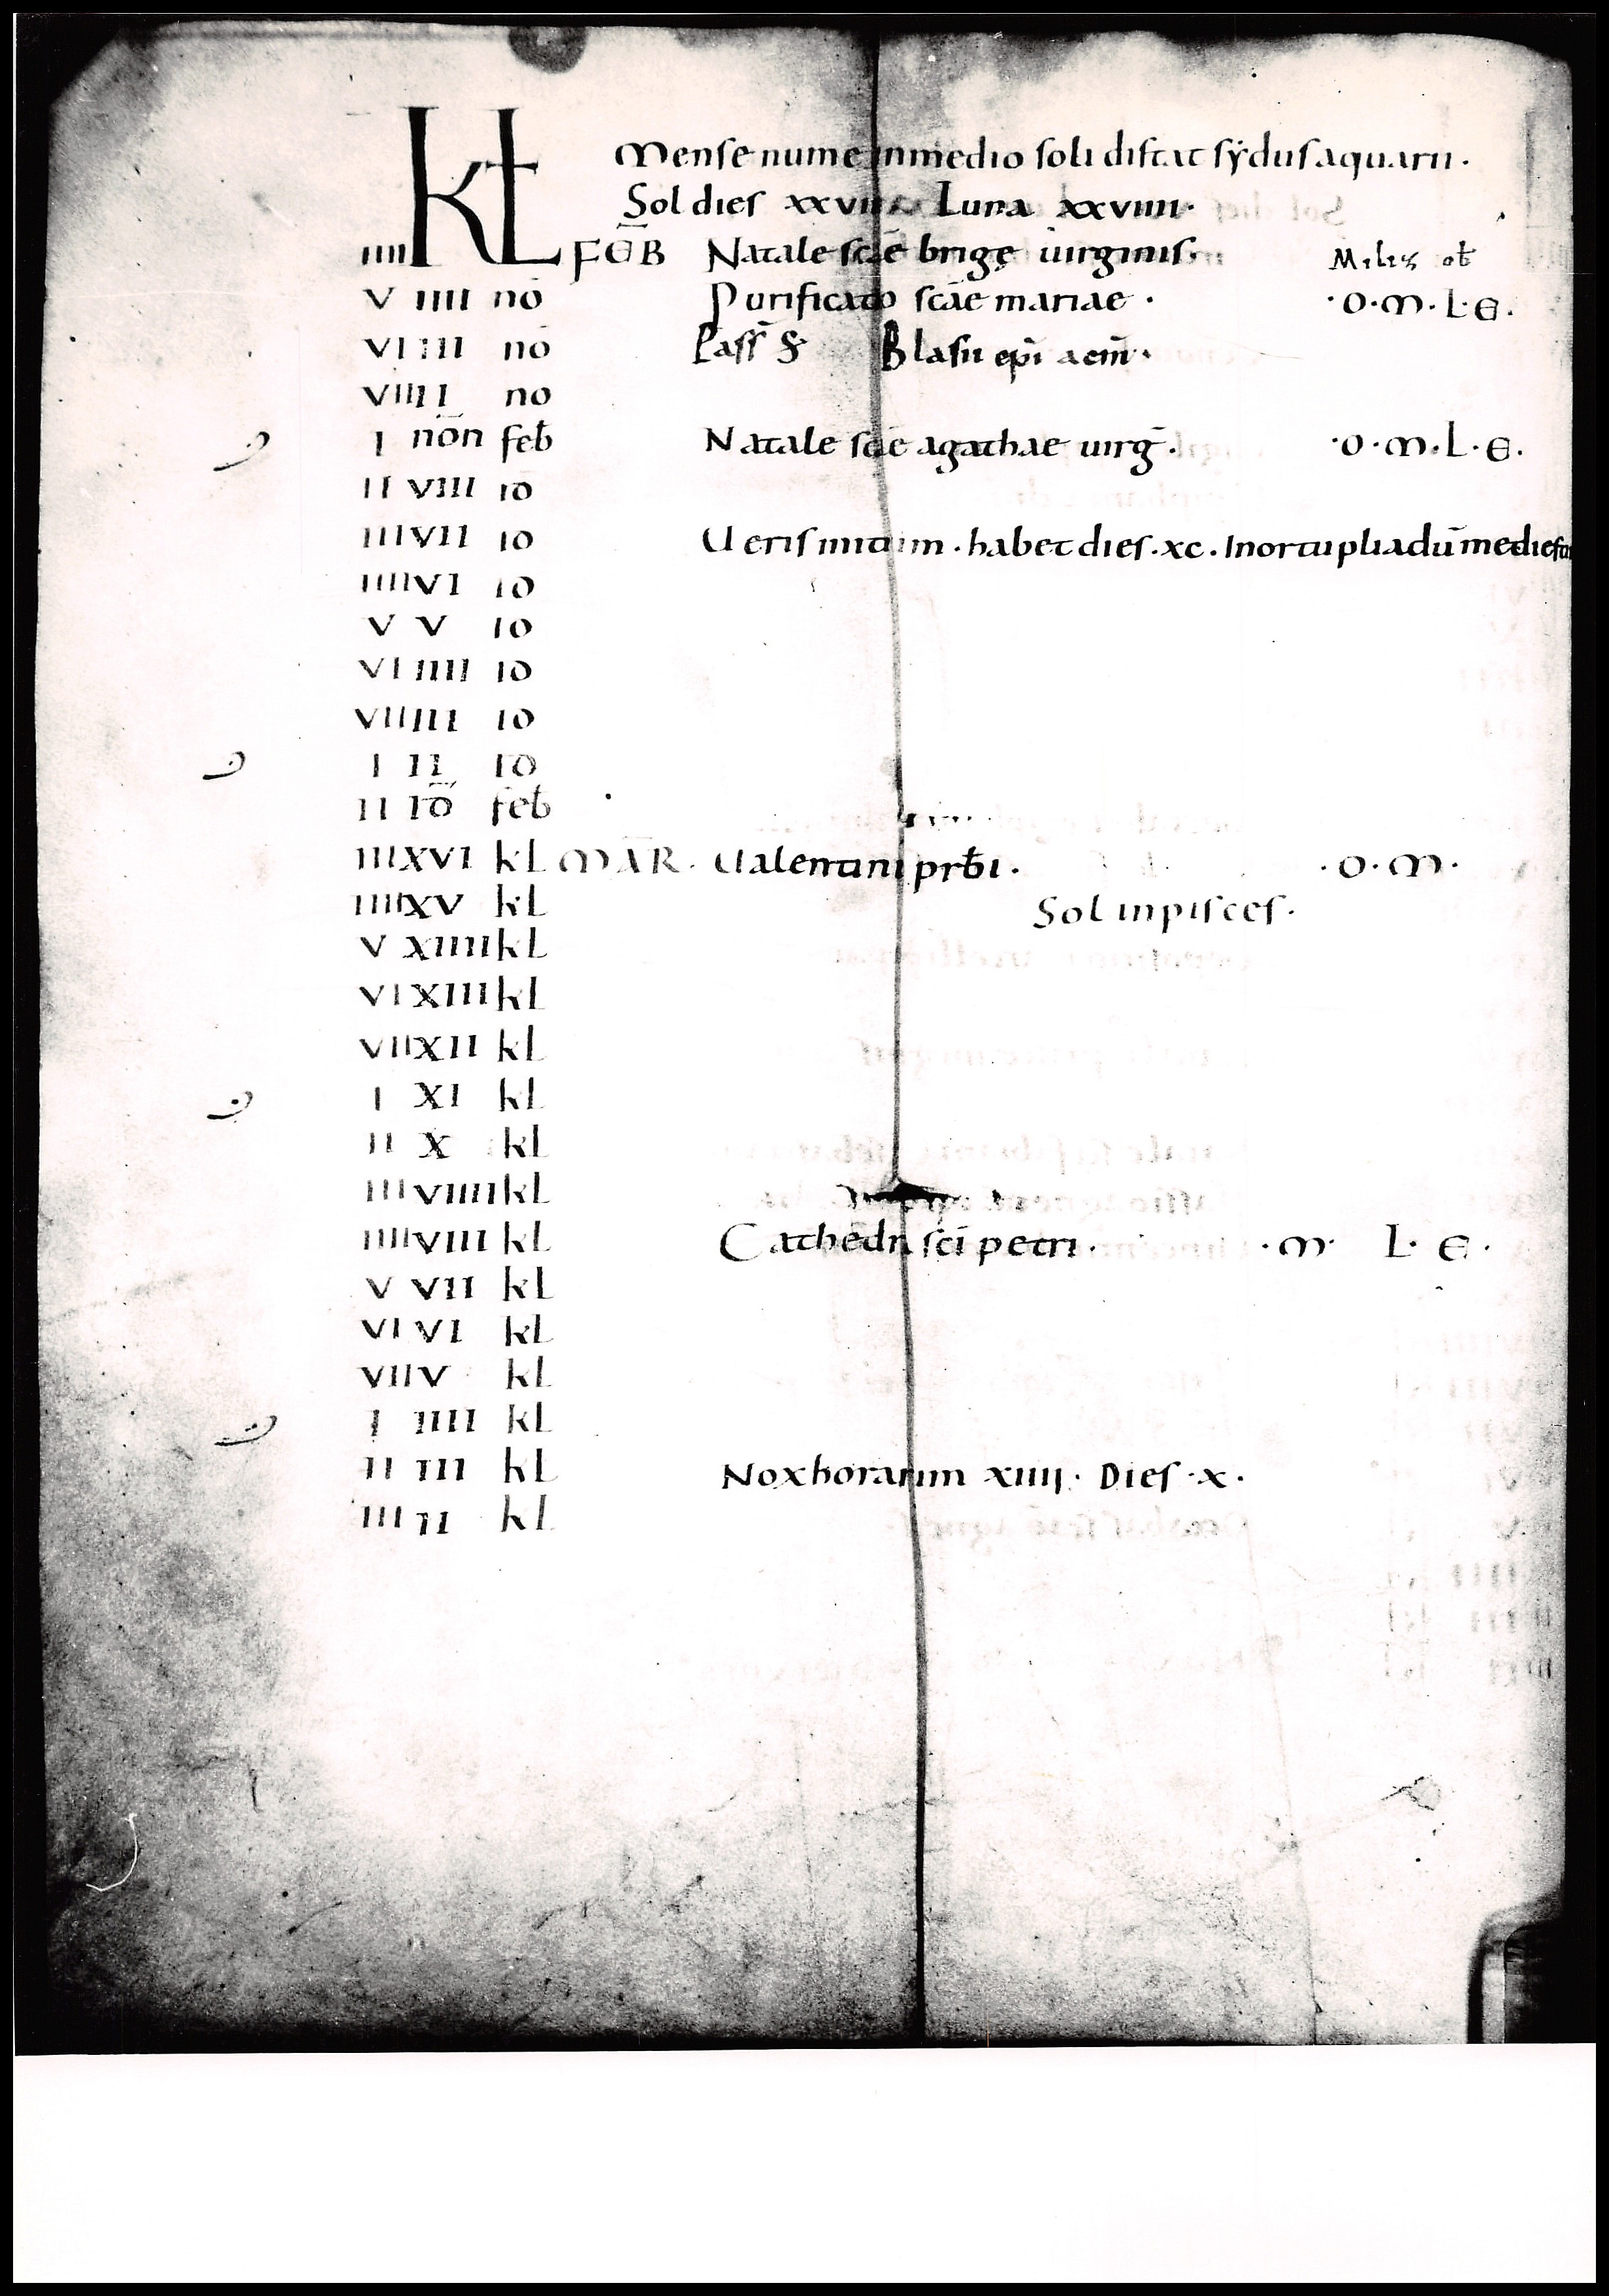 Mense nume in medio soli distat sÿdus aquarii.
Sol dies xxviii. Luna xxviiii.
iiii KL FEB̅ Natale scē brigę uirginis. Miles ob̄
v iiii no Purificatio scāe mariae. ·O·M·L·E.
vi iii no Pass̄ S Blasii epī a cm̄.
vii ii no
i nōn feb̄ Natale scāe agathae uirḡ. ·O·M·L·E.
ii viii id
iii vii id Ueris initium. habet dies. xc. In ortu pliadū
iiii vi id
v v id
vi iiii id
vii iii id
i ii id
ii id̄ feb̄
iii xvi kl MAR̄. Ualentini prb̄i. ·O·M·
iiii xv kl Sol in pisces.
v xiiii kl
vi xiii kl
vii xii kl
i xi kl
ii x kl
iii viiii kl
iiii viii kl Cathedra scī petri. ·M· L· E·
v vii kl
vi vi kl
vii v kl
i iiii kl
ii iii kl Nox horarum xiiii. Dies ·x·
iii ii kl